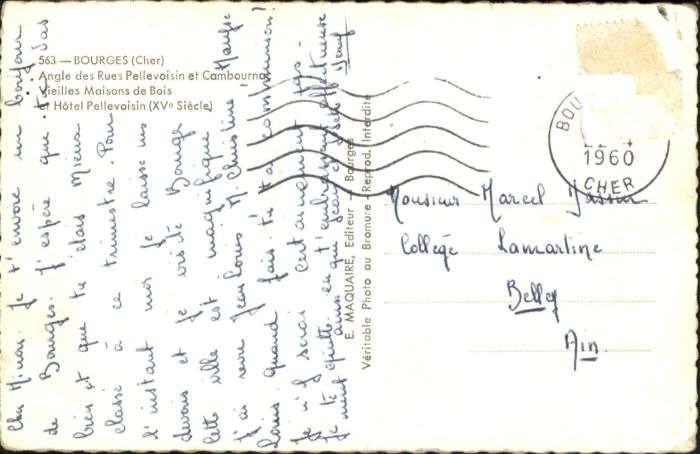 563 — BOURGES (Cher)
Angle des Rues Pellevoisin et Cambournac
Vieilles Maisons de Bois
et Hôtel Pellevoisin (XVe Siècle)
Je t'envoie un bonjour
de Bourges. J'espère que tu vas
bien et que tu étais mieux
classé à ce trimestre. Pour
l'instant moi je laisse mes
devoirs et je visite Bourges
cette ville est magnifique
j'ai revu Jean Louis, M. Christine,
Louis. quand fais-tu ta communion?
Je n'y serai certainement pas.
Je te quitte en t'embrassant affectueuse
ment ainsi que
E. MAQUAIRE, Editeur — Bourges
Véritable Photo au Bromure - Reprod. Interdite
BOU
1960
CHER
Monsieur Marcel
Collège Lamartine
Belley
Ain